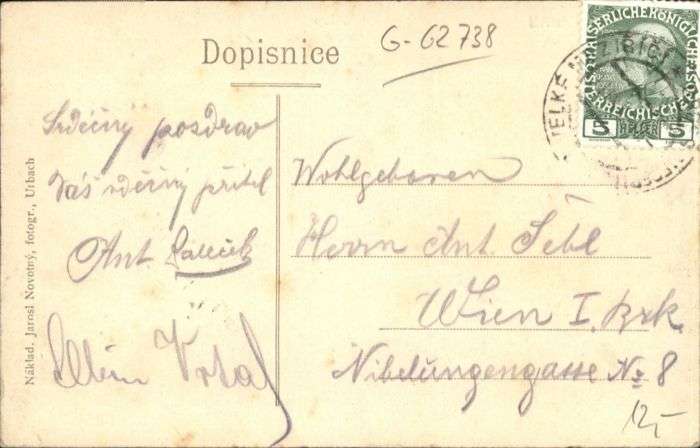 Dopisnice
G-62738
VELKÉ MEZIŘÍČÍ
KAISERLICHE KÖNIGLICHE
ÖSTERREICHISCHE POST
5 HELLER 5
Srdečný pozdrav
Váš vděčný přítel
Ant.
Vrtal
Wohlgeboren
Herrn Ant. Šebl
Wien I. Bzk.
Nibelungengasse № 8
12,-
Náklad. Jarosl Novotný, fotogr., Urbach